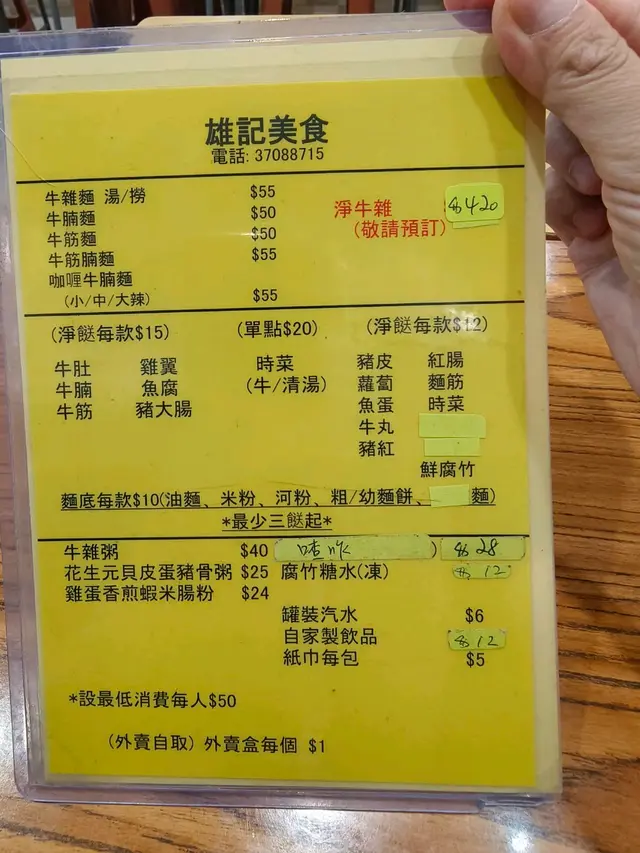 雄記美食
電話: 37088715
牛雜麵 湯/撈 $55
牛腩麵 $50
牛筋麵 $50
牛筋腩麵 $55
咖喱牛腩麵
(小/中/大辣) $55
淨牛雜 $420
(敬請預訂)
(淨餸每款$15) (單點$20) (淨餸每款$12)
牛肚 雞翼 時菜 豬皮 紅腸
牛腩 魚腐 (牛/清湯) 蘿蔔 麵筋
牛筋 豬大腸 魚蛋 時菜
牛丸
豬紅
鮮腐竹
麵底每款$10(油麵、米粉、河粉、粗/幼麵餅、 麵)
*最少三餸起*
牛雜粥 $40 喳咋 ) $28
花生元貝皮蛋豬骨粥 $25 腐竹糖水(凍) $12
雞蛋香煎蝦米腸粉 $24
罐裝汽水 $6
自家製飲品 $12
紙巾每包 $5
*設最低消費每人$50
(外賣自取) 外賣盒每個 $1